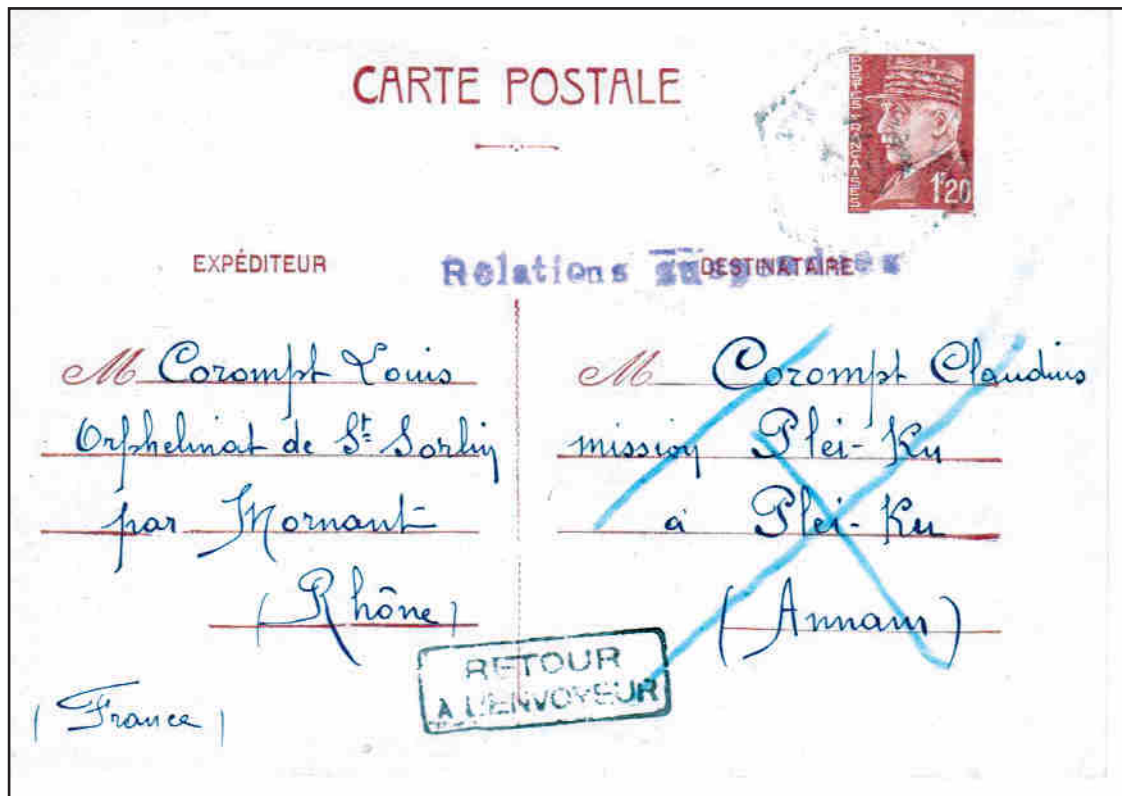 CARTE POSTALE
POSTES FRANÇAISES
1F20
EXPÉDITEUR
Relations suspendues
DESTINATAIRE
M Corompt Louis
Orphelinat de St Sorlin
par Mornant
(Rhône)
(France)
M Corompt Claudius
mission Plei-Ku
à Plei-Ku
(Annam)
RETOUR
A L'ENVOYEUR